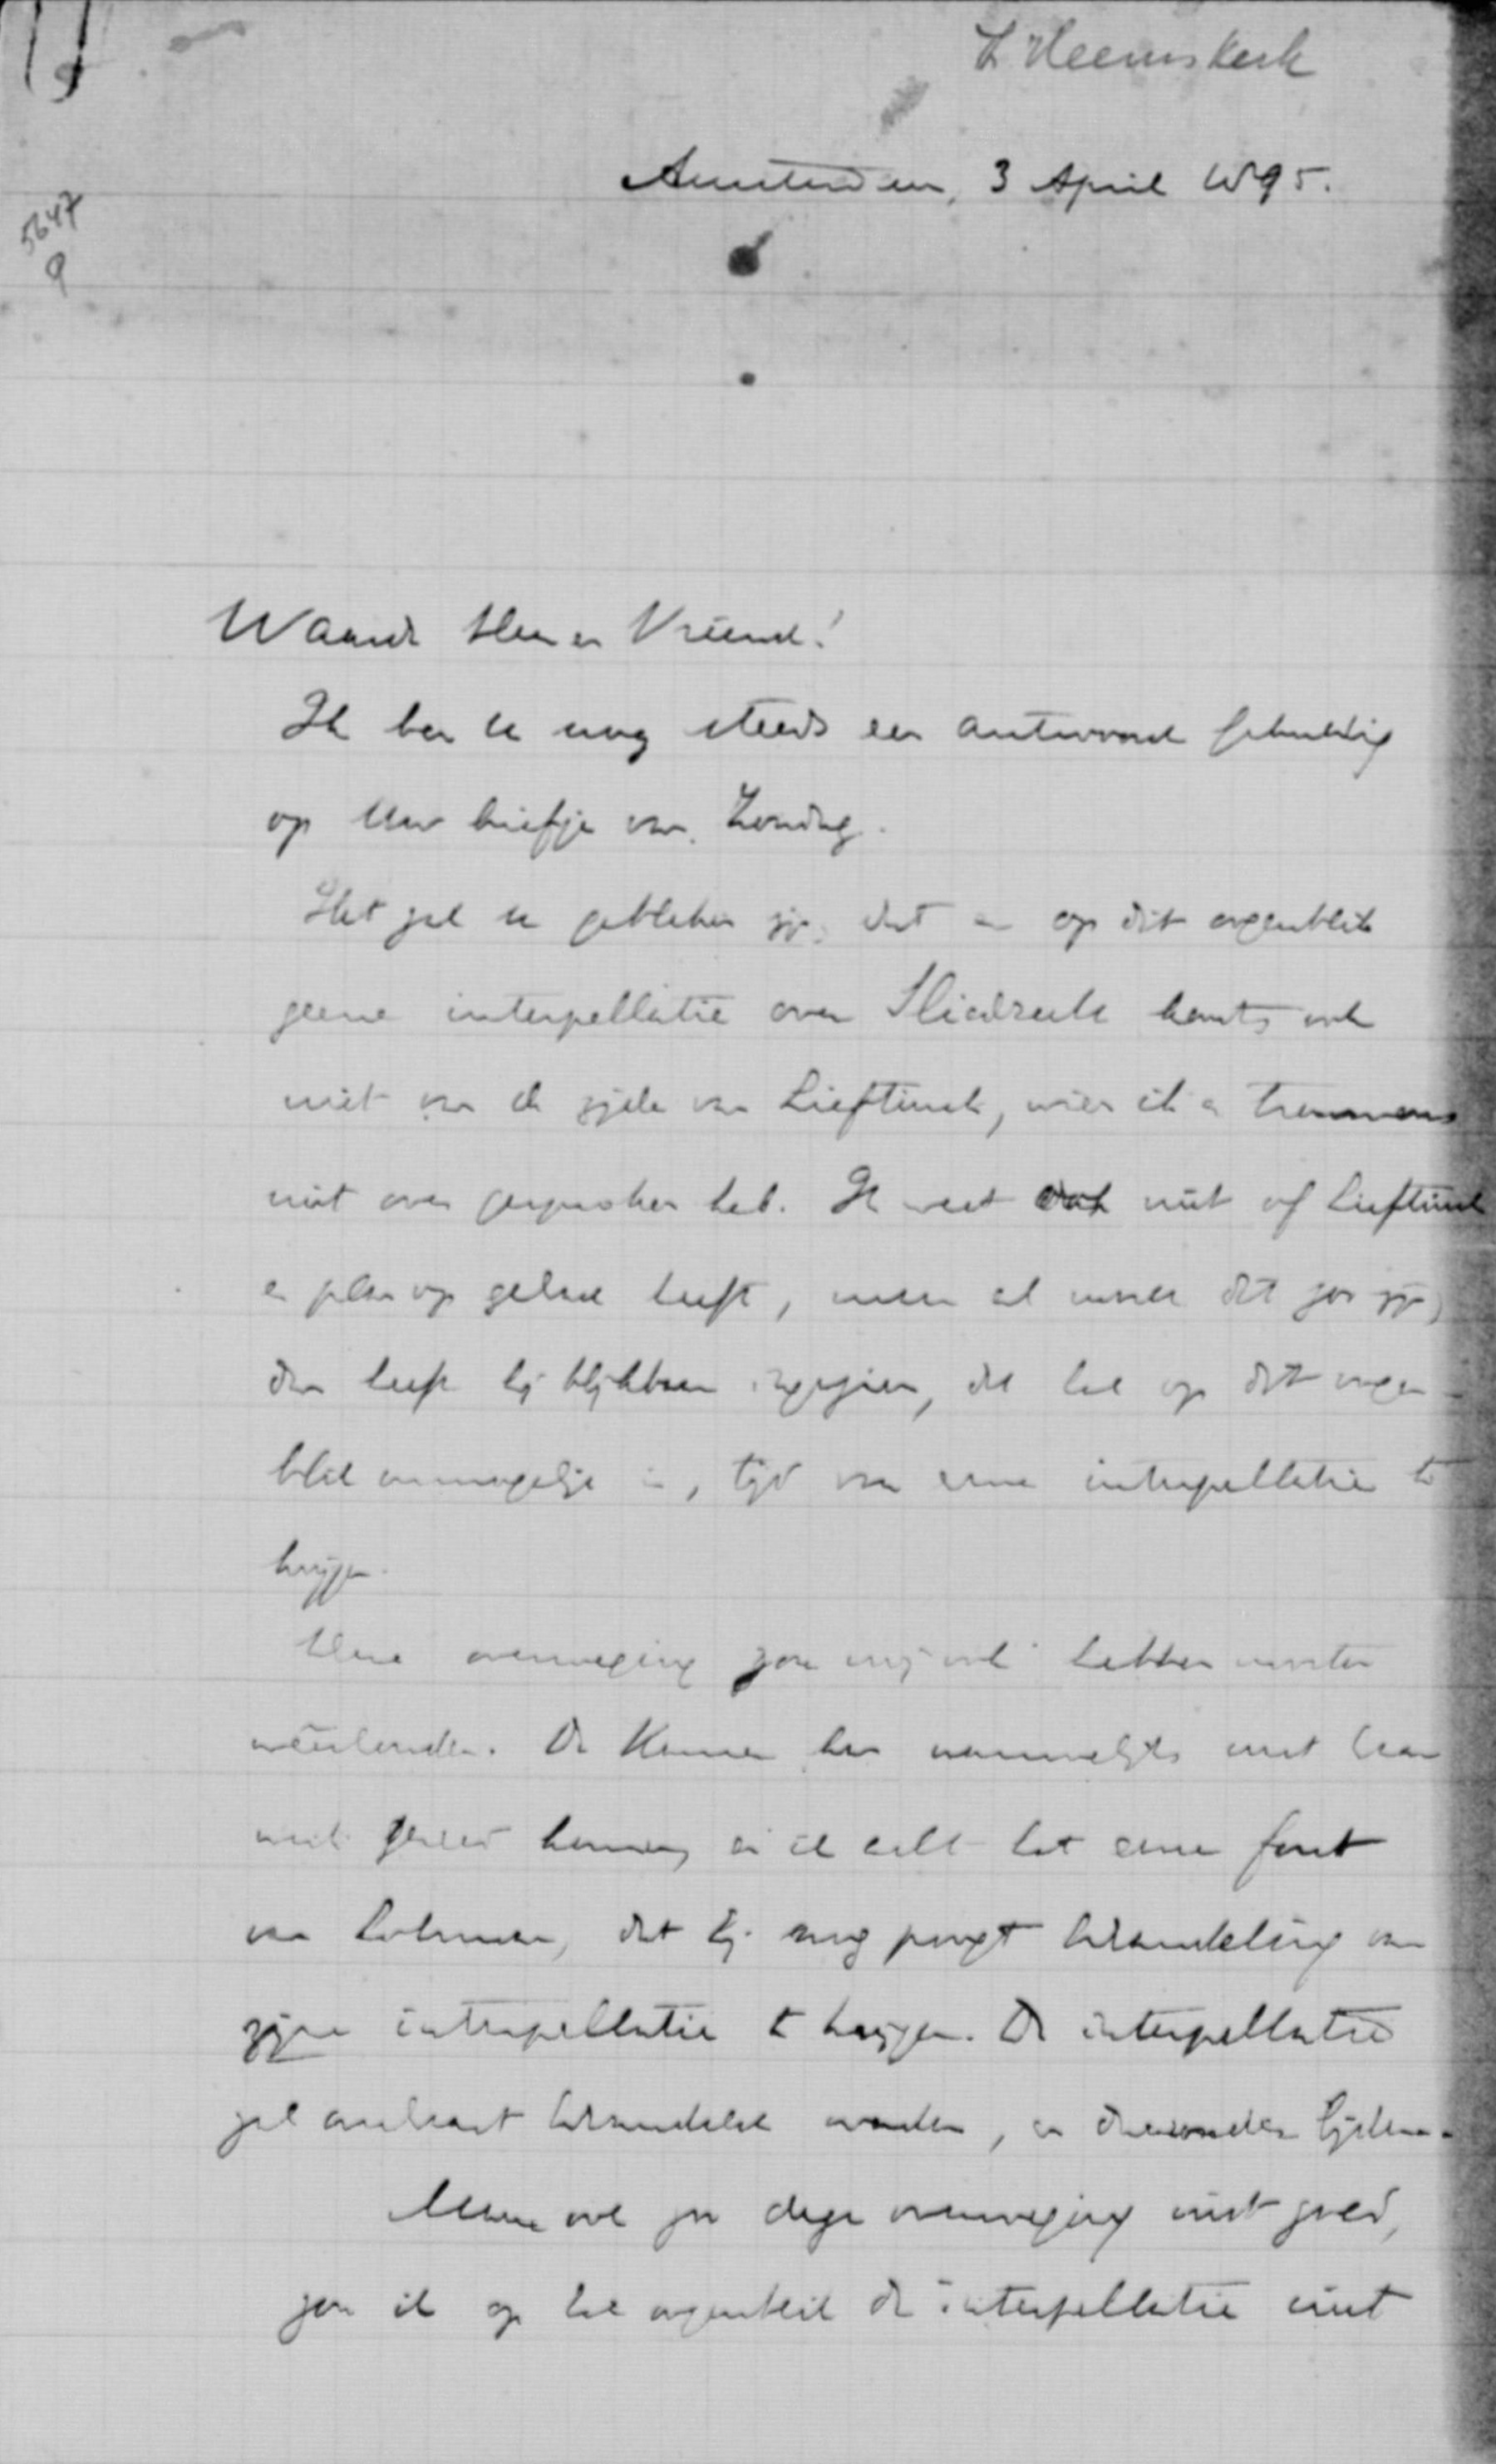 Th Heemskerk
Amsterdam, 3 April 1895.
5647
9
Waarde Heer en Vriend!
Ik ben u nog steeds een antwoord schuldig
op Uw briefje van Zondag.
Het zal u gebleken zijn, dat er op dit oogenblik
geene interpellatie over Sliedrecht komt, ook
niet van de zijde van Lieftinck, wien ik er trouwens
niet over gesproken heb. Ik weet ook niet of Lieftinck
er plan op gehad heeft, maar al mocht dit zoo zijn,
dan heeft hij blijkbaar ingezien, dat het op dit oogen-
blik onmogelijk is, tijd voor eene interpellatie te
krijgen.
Deze overweging zou mij ook hebben moeten
weerhouden. De Kamer kan namelijk met haar
werk gereed komen, en ik acht het eene fout
van Lohman, dat hij nog poogt behandeling van
zijne interpellatie te krijgen. De interpellatie
zal onthaast behandeld worden, en daaronder lijden.
Maar ook zoo deze overweging niet gold,
zou ik op het oogenblik de interpellatie niet